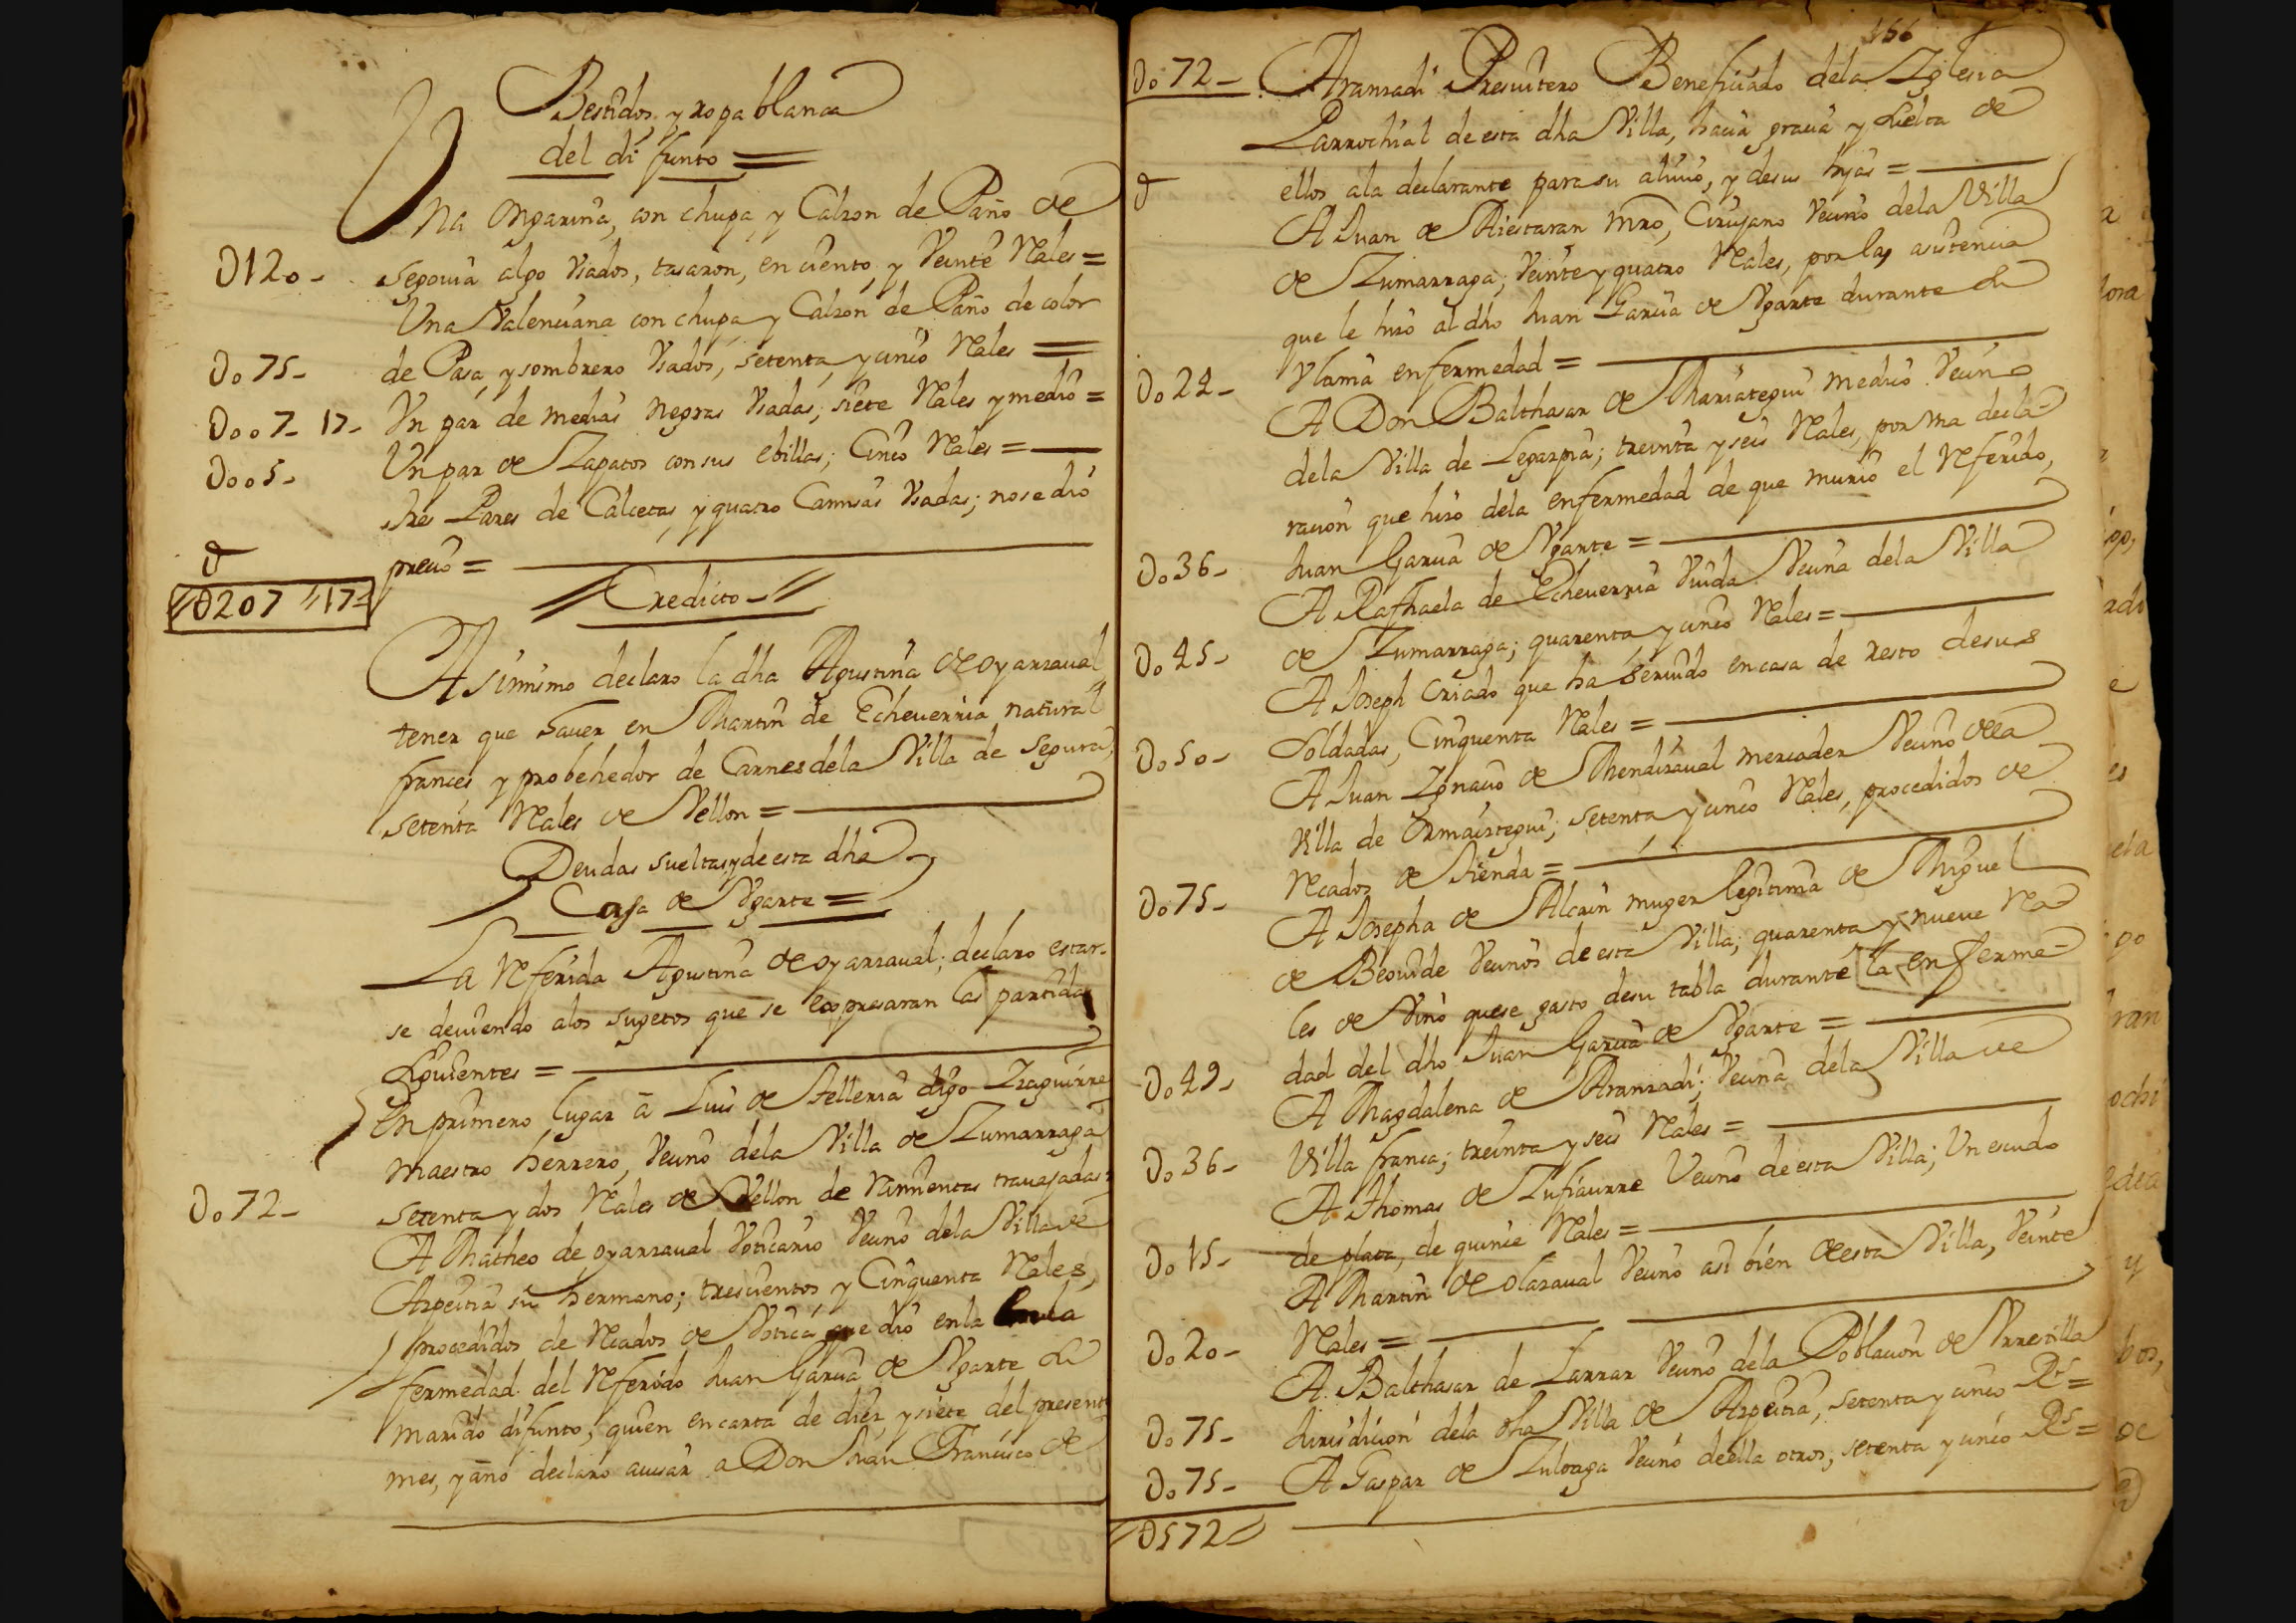 Bestidos, y ropa blanca
del difunto =
Una Ongarina, con chupa, y Calzon de Paño de
D120 - Segouia algo Vsados, tasaron, en ciento, y Veinte Rales =
Una Valenciana con chupa, y Calzon de Paño de color
Do75 - de Pasa, y sombrero Vsados, setenta, y cinco Rales =
Doo7 - 17 - Vn par de medias negras Vsadas; siete Rales y medio =
Doo5 - Un par de Zapatos con sus ebillas; Cinco Rales =
tres Pares de Calcetas, y quatro Camisas Vsadas; nose dio
precio =
D207 // 17 =
// Credicto - //
Asimismo declaro la dha Agustina de oyarzaual
tener que hauer en Martin de Echeuerria natural
frances y probehedor de Carnes dela Villa de Segura,
setenta Rales de Vellon =
Deudas sueltas, y de esta dha
Casa de Vgarte =
La Referida Agustina de oyarzaual; declaro estar-
se deuiendo alos sugetos que se expresaran las partidas
siguientes =
En primero lugar â Luis de Telleria digo Izaguirre
Maestro herrero, Vecino dela Villa de Zumarraga
Do72 - setenta y dos Rales de Vellon de Rimientas trauajadas =
A Matheo de oyarzaual Voticario Vecino dela Villa de
Azpeitia su hermano; trescientos y Cinquenta Rales,
procedidos de Rcados de Votica que dio enla
fermedad del Referido Juan Garcia de Vgarte su
marido difunto; quien en carta de diez, y siete del present
mes, y año declaro auisar a Don Juan Francisco de
166
Do72 - Aranzadi Presuitero Beneficiado dela Yglesia
Parrochial de esta dha Villa, hacia gracia y suelta de
ellos ala declarante para su aliuio, y desus hijas =
A Juan de Aiestaran Mro, Cirujano Vecino dela Villa
de Zumarraga; Veinte y quatro Rales, por las asistencia
que le hizo al dho Juan Garcia de Vgarte durante su
Do24 - Vltima enfermedad =
A Don Balthasar de Mariategui medico Vecino
dela Villa de Legazpia; treinta y seis Rales, por Vna decla-
racion que hizo dela enfermedad de que murio el Referido,
Do36 - Juan Garcia de Vgarte =
A Raphaela de Echeuerria Viuda Vecina dela Villa
Do45 - de Zumarraga; quarenta, y cinco Rales =
A Joseph Criado que ha seruido en casa de resto desus
Do50 - Soldadas, Cinquenta Rales =
A Juan Ygnacio de Mendizaual mercader Vecino dela
Villa de Ormaiztegui; setenta y cinco Rales, procedidos de
Do75 - Rcados de tienda =
A Josepha de Alcain muger legitima de Miguel
de Beouide Vecinos de esta Villa; quarenta y nueve Ra-
les de Vino quese gasto desu tabla durante la enferme-
Do49 - dad del dho Juan Garcia de Vgarte =
A Magdalena de Aranzadi; Vecina dela Villa de
Do36 - Villa franca; treinta y seis Rales =
A Thomas de Zufiaurre Vecino de esta Villa; Un escudo
Do15 - de plata, de quince Rales =
A Martin de olazaual Vecino asi bien de esta Villa, Veinte
Do20 - Rales =
A Balthasar de Larrar Vecino dela Poblacion de Vrrestilla
Do75 - Jurisdicion dela dha Villa de Azpeitia, setenta y cinco Rs =
Do75 - A Gaspar de Zuloaga Vecino de ella otros, setenta y cinco Rs =
// D572 //